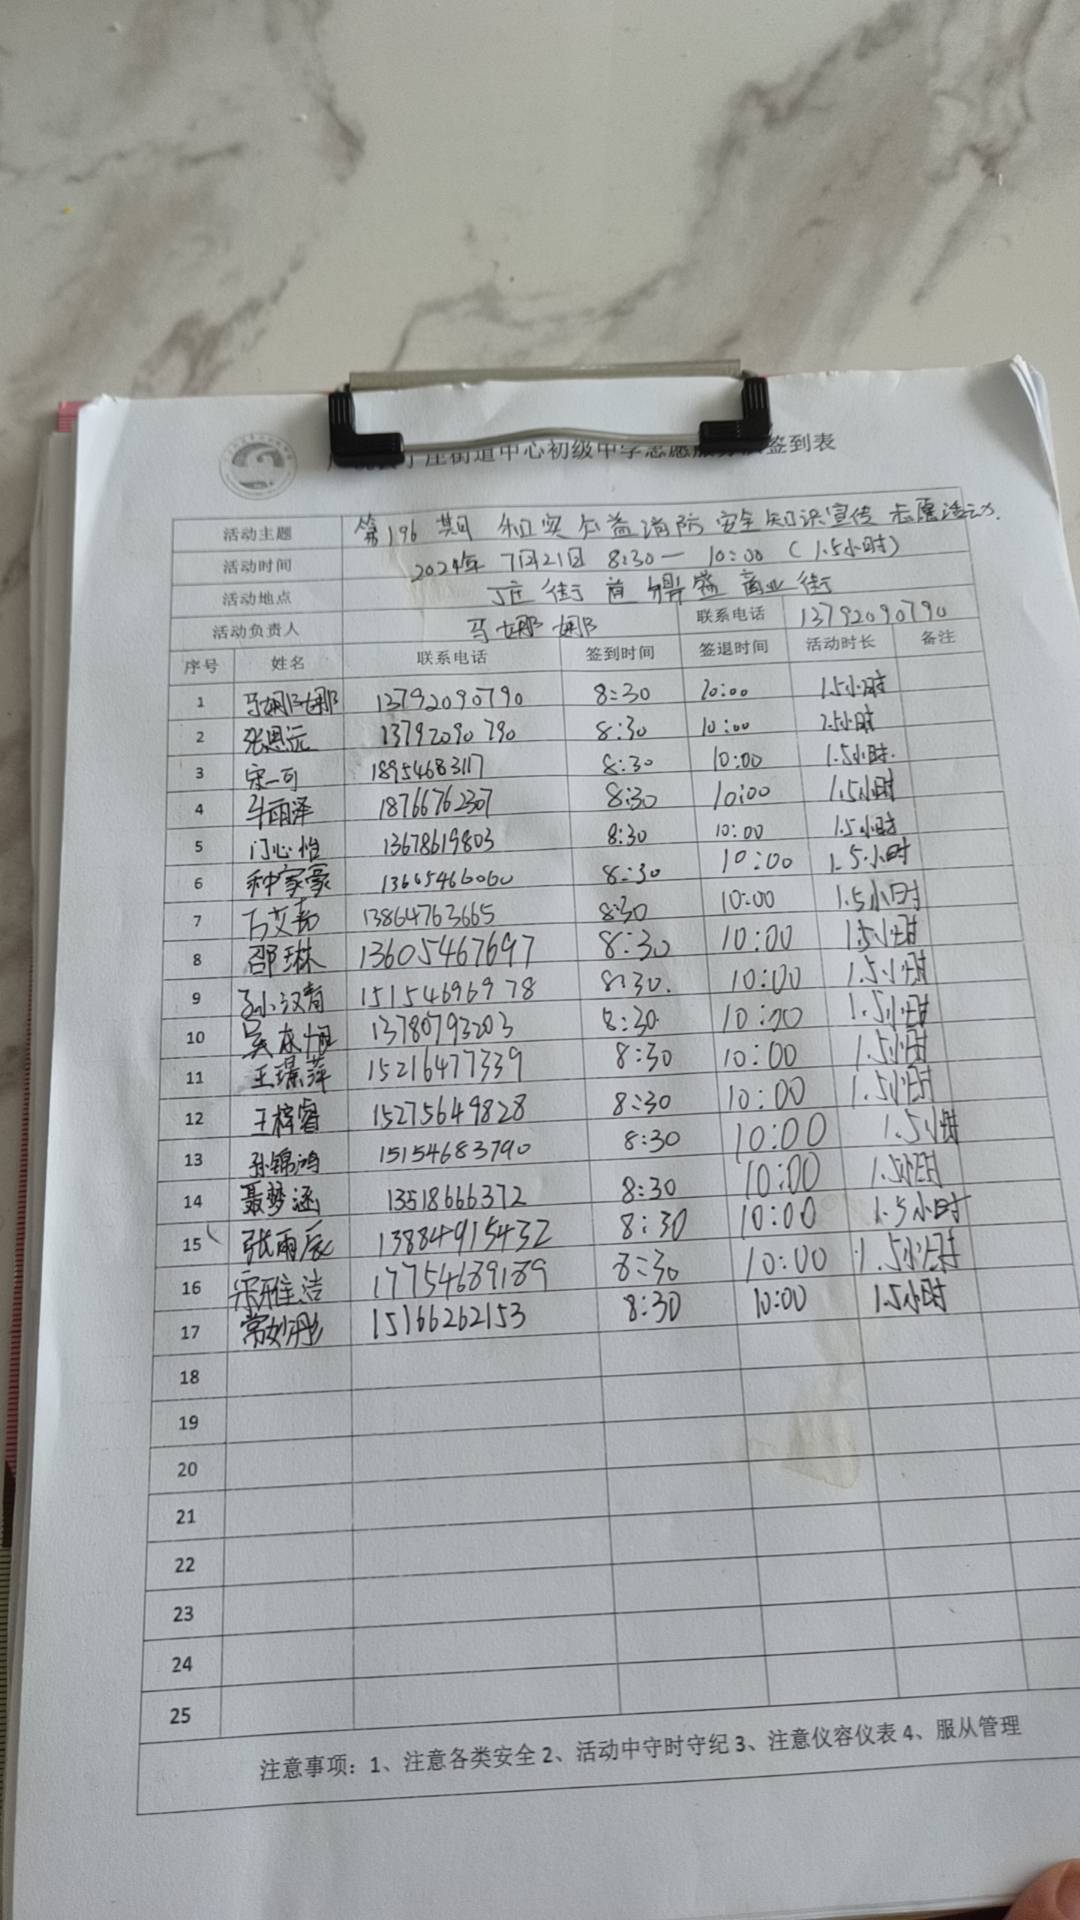 丁庄街道中心初级中学志愿服务队签到表
活动主题 第196期 和实公益消防安全知识宣传志愿活动.
活动时间 2024年7月21日 8:30—10:00(1.5小时)
活动地点 丁庄街首鼎盛商业街
活动负责人 马娜娜 联系电话 13792090790
序号 姓名 联系电话 签到时间 签退时间 活动时长 备注
1 马娜娜 13792090790 8:30 10:00 1.5小时
2 张恩沅 13792090790 8:30 10:00 1.5小时
3 宋一可 18954683117 8:30 10:00 1.5小时.
4 雨泽 18766762307 8:30 10:00 1.5小时
5 门心怡 13678619803 8:30 10:00 1.5小时
6 种家豪 13665466060 8:30 10:00 1.5小时
7 艾嘉 13864763665 8:30 10:00 1.5小时
8 邵琳 13605467697 8:30 10:00 1.5小时
9 孙汉青 15154696978 8:30. 10:00 1.5小时
10 吴恒 13780793203 8:30 10:00 1.5小时
11 王璟萍 15216477339 8:30 10:00 1.5小时
12 王梓睿 15275649828 8:30 10:00 1.5小时
13 孙锦鸿 15154683790 8:30 10:00 1.5小时
14 聂梦涵 13518666372 8:30 10:00 1.5小时
15 张雨辰 13884915432 8:30 10:00 1.5小时
16 宋雅洁 17754689189 8:30 10:00 1.5小时
17 常妙彤 15166262153 8:30 10:00 1.5小时
18
19
20
21
22
23
24
25
注意事项：1、注意各类安全 2、活动中守时守纪 3、注意仪容仪表 4、服从管理